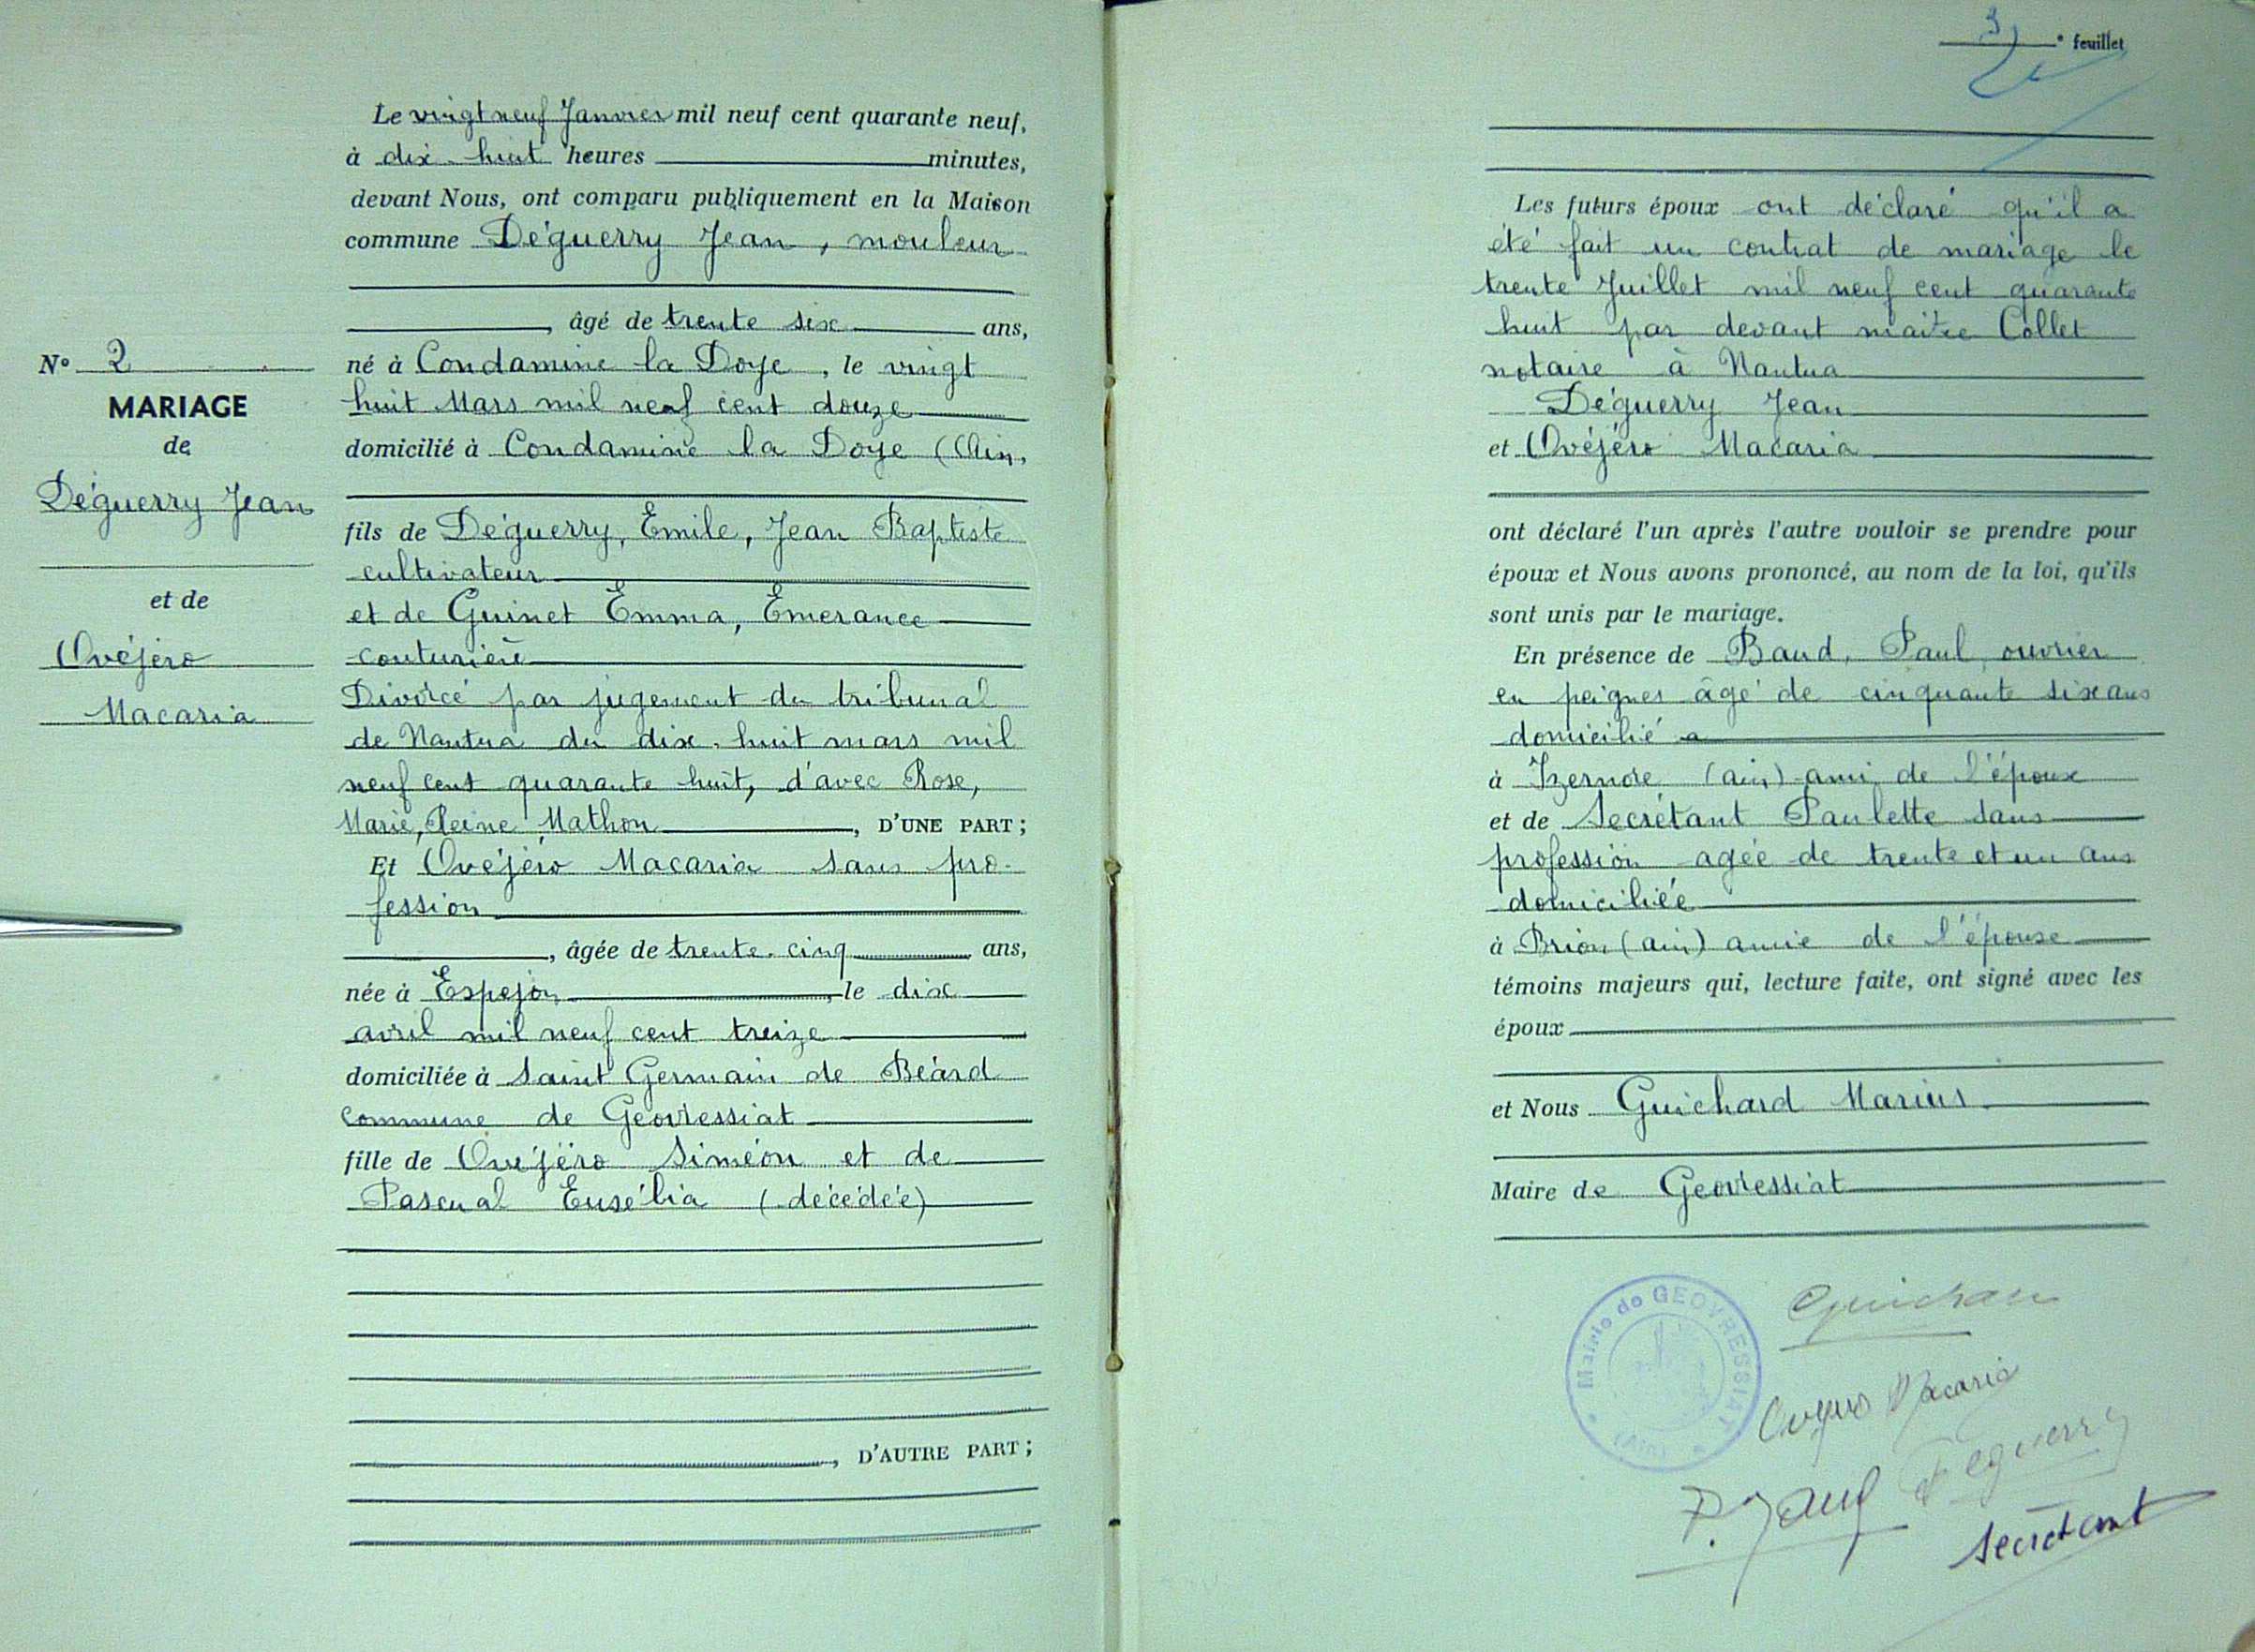 N° 2
MARIAGE
de
Déguerry Jean
et de
Ovéjéro
Macaria
Le vingt neuf Janvier mil neuf cent quarante neuf,
à dix-huit heures minutes,
devant Nous, ont comparu publiquement en la Maison
commune Déguerry Jean, mouleur
, âgé de trente six ans,
né à Condamine la Doye, le vingt
huit Mars mil neuf cent douze
domicilié à Condamine la Doye (Ain,
fils de Déguerry, Emile, Jean Baptiste
cultivateur
et de Guinet Emma, Emerance
couturière
Divorcé par jugement du tribunal
de Nantua du dix-huit mars mil
neuf cent quarante huit, d'avec Rose,
Marie, Reine Mathon, D'UNE PART ;
Et Ovéjéro Macaria sans pro-
fession
, âgée de trente-cinq ans,
née à Espejon, le dix
avril mil neuf cent treize
domiciliée à Saint Germain de Béard
commune de Geovressiat
fille de Ovéjéro Siméon et de
Pascual Eusélia (décédée)
, D'AUTRE PART ;
3e feuillet
Les futurs époux ont déclaré qu'il a
été fait un contrat de mariage le
trente Juillet mil neuf cent quarante
huit par devant maître Collet
notaire à Nantua
Déguerry Jean
et Ovéjéro Macaria
ont déclaré l'un après l'autre vouloir se prendre pour
époux et Nous avons prononcé, au nom de la loi, qu'ils
sont unis par le mariage.
En présence de Baud, Paul ouvrier
en peignes âgé de cinquante six ans
domicilié a
à Izernore (ain) ami de l'époux
et de Secrétant Paulette sans
profession agée de trente et un ans
domiciliée
à Brion (ain) amie de l'épouse
témoins majeurs qui, lecture faite, ont signé avec les
époux
et Nous Guichard Marius
Maire de Geovressiat
Mairie de GEOVRESSIAT
(Ain)
Guichard
Ovejero Macaria
Déguerry
P. Baud
Secrétant